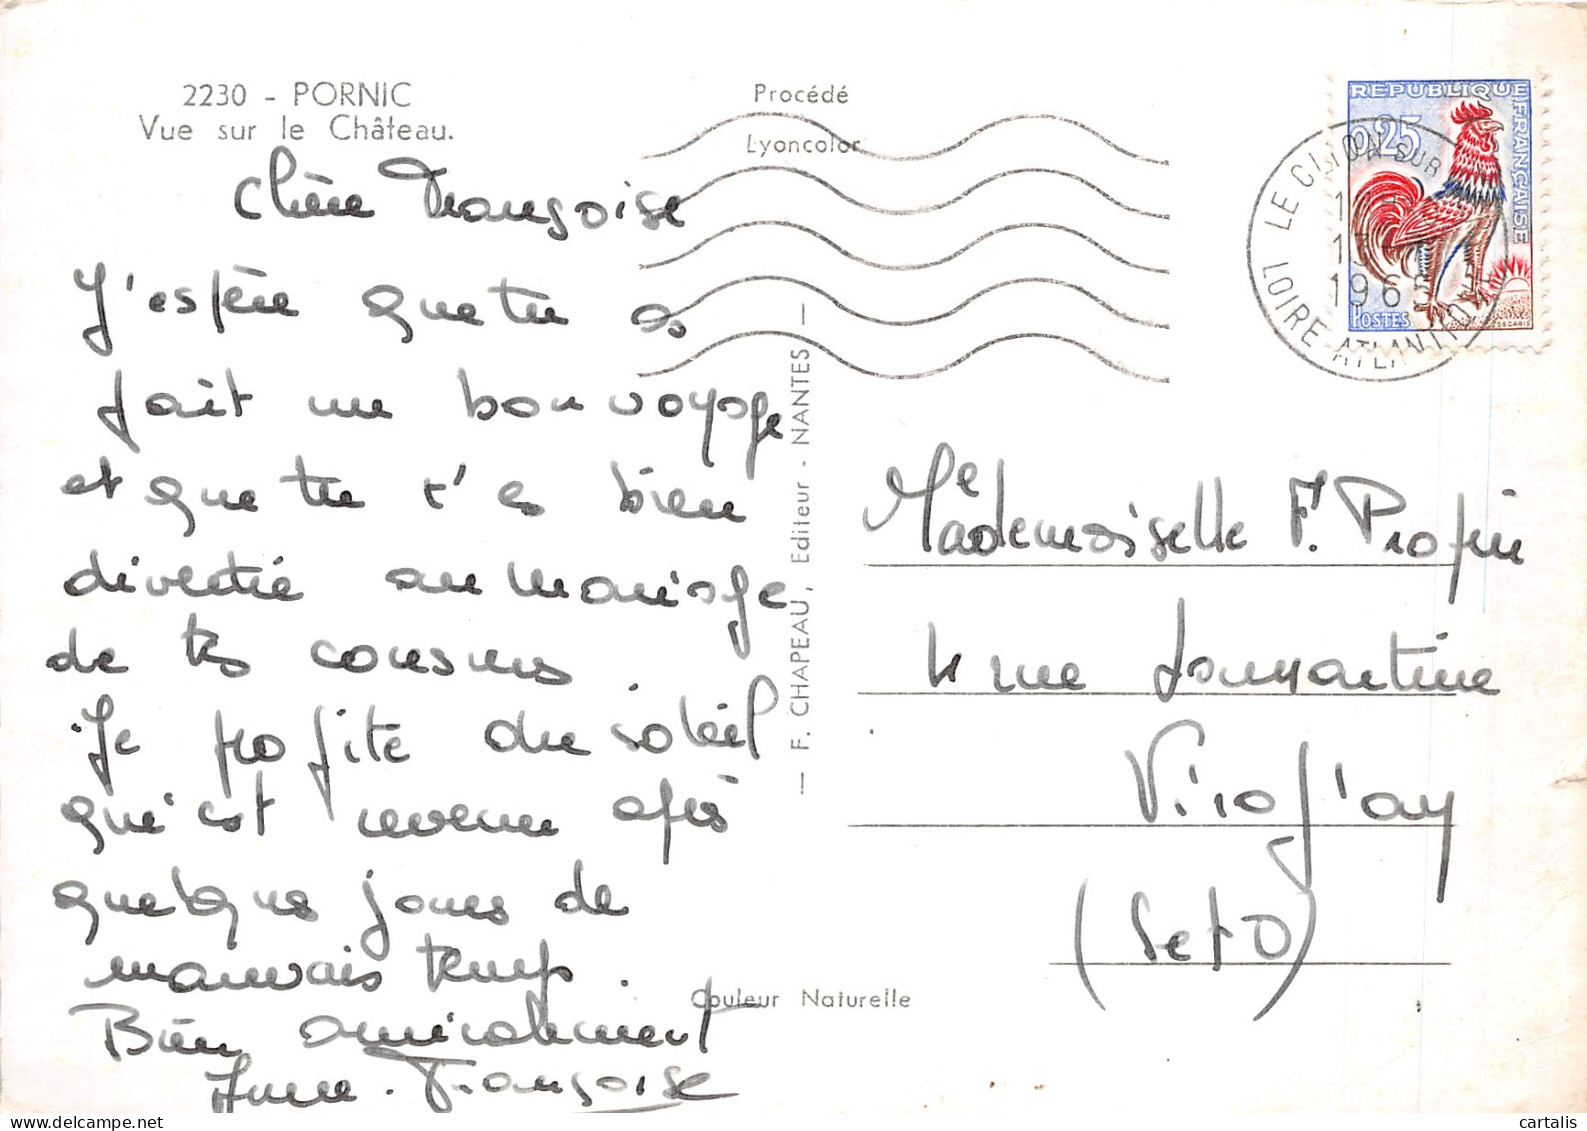 2230 - PORNIC
Vue sur le Château.
Procédé
Lyoncolor
REPUBLIQUE FRANÇAISE
0,25
POSTES
DECARIS
LE CLION SUR
13
1965
LOIRE ATLANTIQUE
Chère Françoise
J'espère que tu as
fait un bon voyage
et que tu t'es bien
divertie au mariage
de tes cousins
Je profite du soleil
qui est revenu après
quelques jours de
mauvais temps.
Bien amicalement
Anne-Françoise
— F. CHAPEAU, Editeur - NANTES —
Mademoiselle F. Propin
4 rue Lamartine
Viroflay
(S et O)
Couleur Naturelle
cartalis
delcampe.net